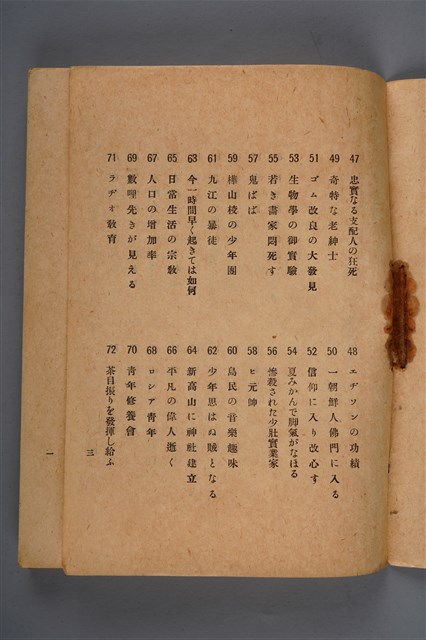 47 忠實なる支配人の狂死
48 エヂソンの功績
49 奇特な老紳士
50 一朝鮮人佛門に入る
51 ゴム改良の大發見
52 信仰に入り改心す
53 生物學の御實驗
54 夏みかんで脚氣がなほる
55 若き畵家悶死す
56 慘殺された少壯實業家
57 鬼ばば
58 ヒ元帥
59 樺山校の少年團
60 島民の音樂趣味
61 九江の暴徒
62 少年思はぬ賊となる
63 今一時間早く起きては如何
64 新高山に神社建立
65 日常生活の宗敎
66 平凡の偉人逝く
67 人口の增加率
68 ロシア靑年
69 數哩先きが見える
70 靑年修養會
71 ラヂオ敎育
72 茶目振りを發揮し給ふ
三
一